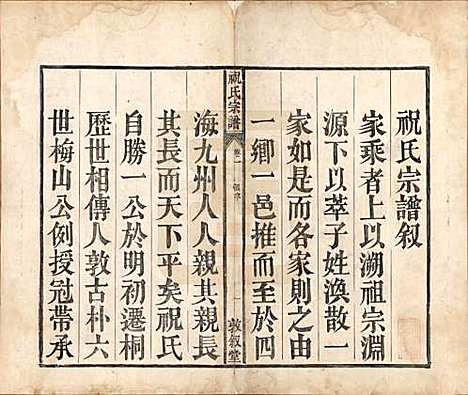 祝氏宗譜叙
家乘者上以溯祖宗淵
源下以萃子姓渙散一
家如是而各家則之由
一鄉一邑推而至於四
祝氏宗譜
卷一
敦叙堂
海九州人人親其親長
其長而天下平矣祝氏
自勝一公於明初遷桐
歷世相傳人敦古朴六
世梅山公例授冠帶承